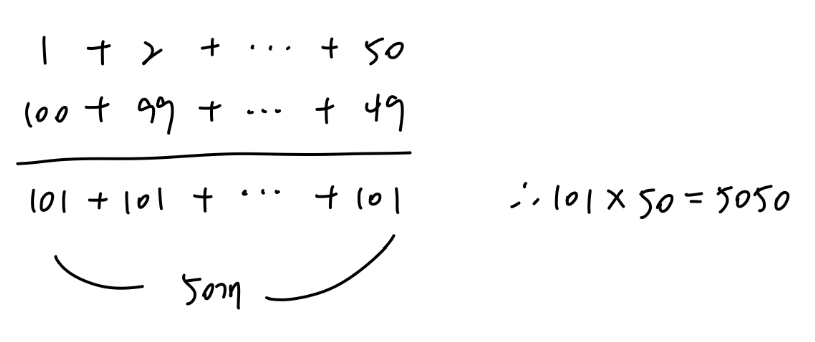 1 + 2 + ··· + 50
100 + 99 + ··· + 49
101 + 101 + ··· + 101
50개
∴ 101 × 50 = 5050